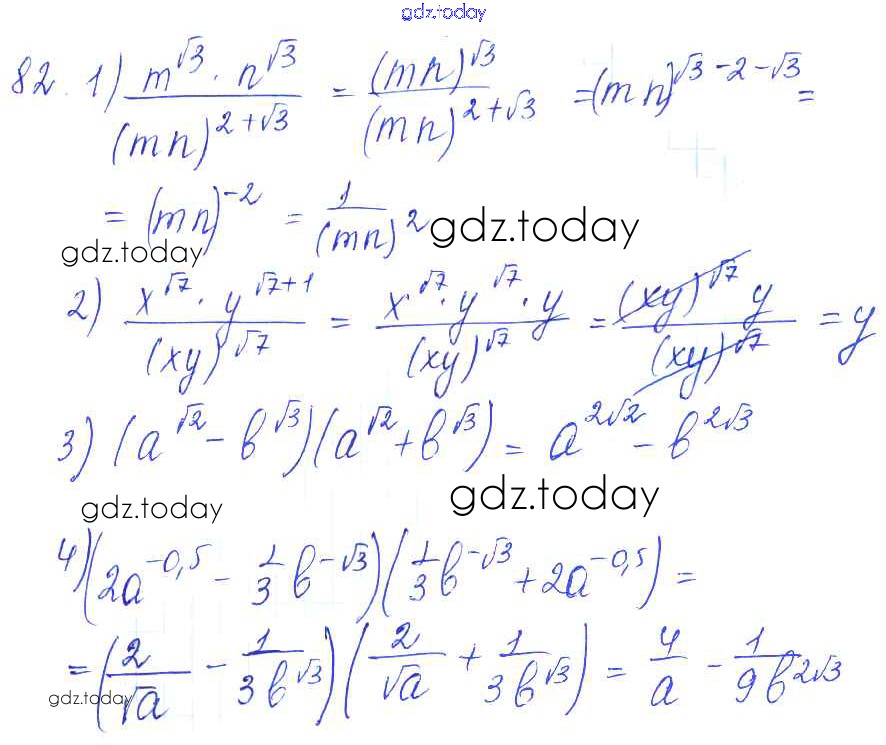 gdz.today
82. 1) \frac{m^{\sqrt{3}} \cdot n^{\sqrt{3}}}{(mn)^{2+\sqrt{3}}} = \frac{(mn)^{\sqrt{3}}}{(mn)^{2+\sqrt{3}}} = (mn)^{\sqrt{3}-2-\sqrt{3}} =
= (mn)^{-2} = \frac{1}{(mn)^2} gdz.today
gdz.today
2) \frac{x^{\sqrt{7}} \cdot y^{\sqrt{7}+1}}{(xy)^{\sqrt{7}}} = \frac{x^{\sqrt{7}} \cdot y^{\sqrt{7}} \cdot y}{(xy)^{\sqrt{7}}} = \frac{(xy)^{\sqrt{7}} y}{(xy)^{\sqrt{7}}} = y
3) (a^{\sqrt{2}} - b^{\sqrt{3}})(a^{\sqrt{2}} + b^{\sqrt{3}}) = a^{2\sqrt{2}} - b^{2\sqrt{3}}
gdz.today gdz.today
4) (2a^{-0,5} - \frac{1}{3}b^{-\sqrt{3}})(\frac{1}{3}b^{-\sqrt{3}} + 2a^{-0,5}) =
= (\frac{2}{\sqrt{a}} - \frac{1}{3b^{\sqrt{3}}})(\frac{2}{\sqrt{a}} + \frac{1}{3b^{\sqrt{3}}}) = \frac{4}{a} - \frac{1}{9b^{2\sqrt{3}}}
gdz.today